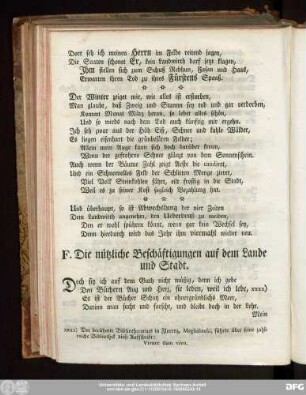 Dort seh ich meinen Herrn im Felde reitend jagen,
Die Saaten schonet Er, kein Landwirth darf jetzt klagen,
Ihm stellen sich zum Schuß Rebhun, Hasen und Haus,
Erwarten ihren Tod zu ihres Fürstens Spaaß.
* * *
Der Winter zeiget mir, wie alles ist erstorben,
Man glaube, daß Zweig und Stamm sey todt und gar verdorben,
Kommt Monat März heran, so lebet alles schön,
Und so wirds nach dem Tod auch künftig mir ergehn.
Ich seh zwar auf der Höh Eiß, Schnee und kahle Wälder,
Es liegen eisenhart die
Allein mein Auge kann sich doch darüber freun,
Wenn der gefrohrne Schnee glänzt von dem Sonnenschein.
Auch wenn der Bäume Zahl zeigt Aeste die candirt,
Und ein Schneevolles Feld der Schlitten Menge zieret,
Viel Volk Steinkohlen führt, mit frostig in die Stadt,
Weil es zu seiner Kost sogleich Bezahlung hat.
* * *
Und überhaupt, so ist Abwechselung der vier Zeiten
Dem Landwirth angenehm, den Ueberdruß zu meiden,
Den er wohl spühren könnt, wenn gar kein Wechsel sey,
Denn hierdurch wird das Jahr ihm viermahl wieder neu.
F. Die nützliche Beschäftigungen auf dem Lande
und Stadt.
Doch bin ich auf dem Guth nicht müßig, denn ich gebe
Den Büchern Aug und Herz, sie leben, weil ich lebe, xxxx)
Es ist der Bücher Schatz ein ohnergründlichs Meer,
Darinn man sucht und forscht, und bleibt doch in der Lehr.
Mein
xxxx) Der berühmte Bibliothecarius in Florenz, Magliabechi, führte über seine zahlreiche Bibliothek diese Aufschrift:
Vivunt dum vivo.